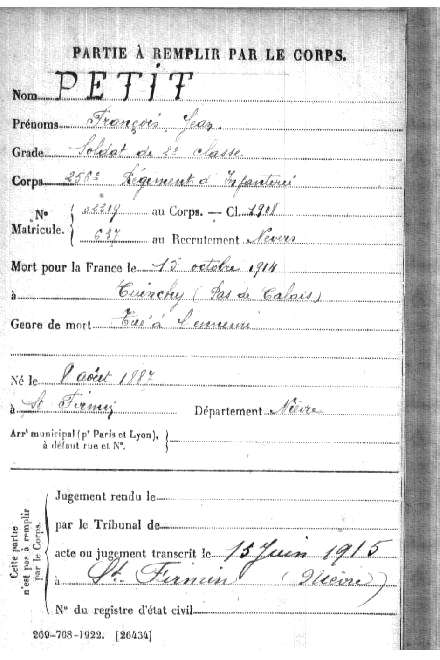 PARTIE À REMPLIR PAR LE CORPS.
Nom PETIT
Prénoms François Jean
Grade Soldat de 2e classe
Corps 256e Régiment d'Infanterie
N° Matricule. { 02219 au Corps. — Cl. 1908
637 au Recrutement Nevers
Mort pour la France le 13 octobre 1914
à Cuinchy (Pas de Calais)
Genre de mort Tué à l'ennemi
Né le 8 août 1887
à St Firmin Département Nièvre
Arrt municipal (pr Paris et Lyon), à défaut rue et N°.
Cette partie n'est pas à remplir par le Corps.
Jugement rendu le
par le Tribunal de
acte ou jugement transcrit le 15 Juin 1915
à St. Firmin (Nièvre)
N° du registre d'état civil
269-708-1922. [26434]